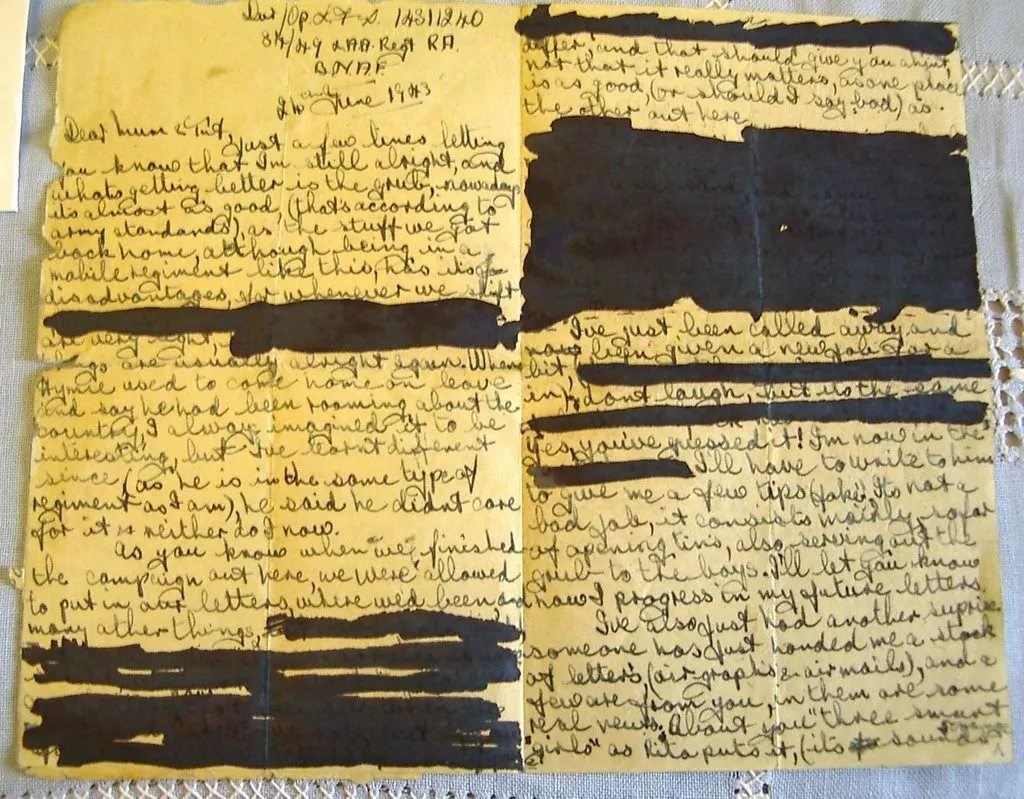 14311240
84/49 LAA Regt RA.
B.N.A.F.
June 1943
Dear Mum &
Just a few lines letting
you know that I'm still alright, and
whats getting better is the grub, nowadays
its almost as good, (thats according to
army standards), as the stuff we got
back home, although being in a
mobile regiment like this, has its
disadvantages, for whenever we shift
are very tight,
things are usually alright again. When
Hymie used to come home on leave
and say he had been roaming about the
country, I always imagined it to be
interesting, but I've learnt different
since (as he is in the same type of
regiment as I am), he said he didnt care
for it & neither do I now.
As you know when we finished
the campaign out here, we were allowed
to put in our letters, where we'd been and
many other things,
differ, and that should give you a hint,
not that it really matters, as one place
is as good, (or should I say bad) as
the other out here
I've just been called away and
now been given a new job for a
bit,
in), dont laugh, but its the same
Yes, you've guessed it! I'm now in the
I'll have to write to him
to give me a few tips (joke). Its not a
bad job, it consists mainly so far
of opening tins, also serving out the
grub to the boys. I'll let you know
how I progress in my future letters.
I've also just had another suprise
someone has just handed me a stack
of letters, (airgraphs & air mails), and a
few are from you, in them are some
real news. About you "three smart
girls" as Rita puts it, (its sounds